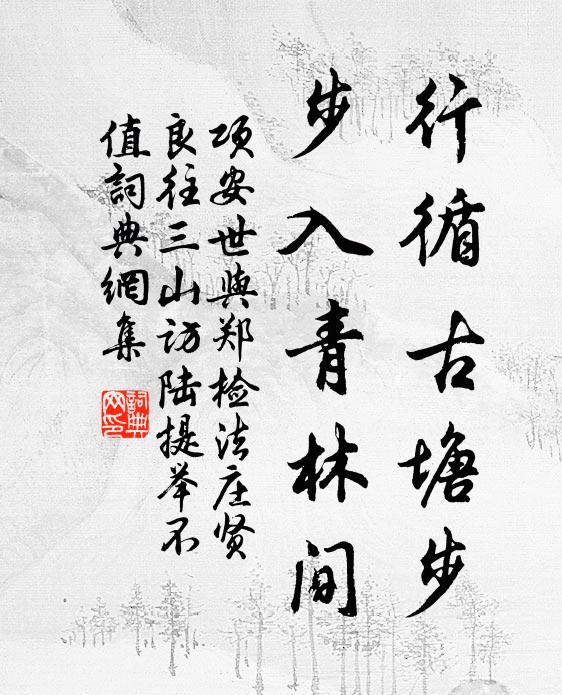 行循古塘步
步入青林间
项安世與郑检法庄贤
良往三山访陆提举不
值詞典網集
詞典
网印